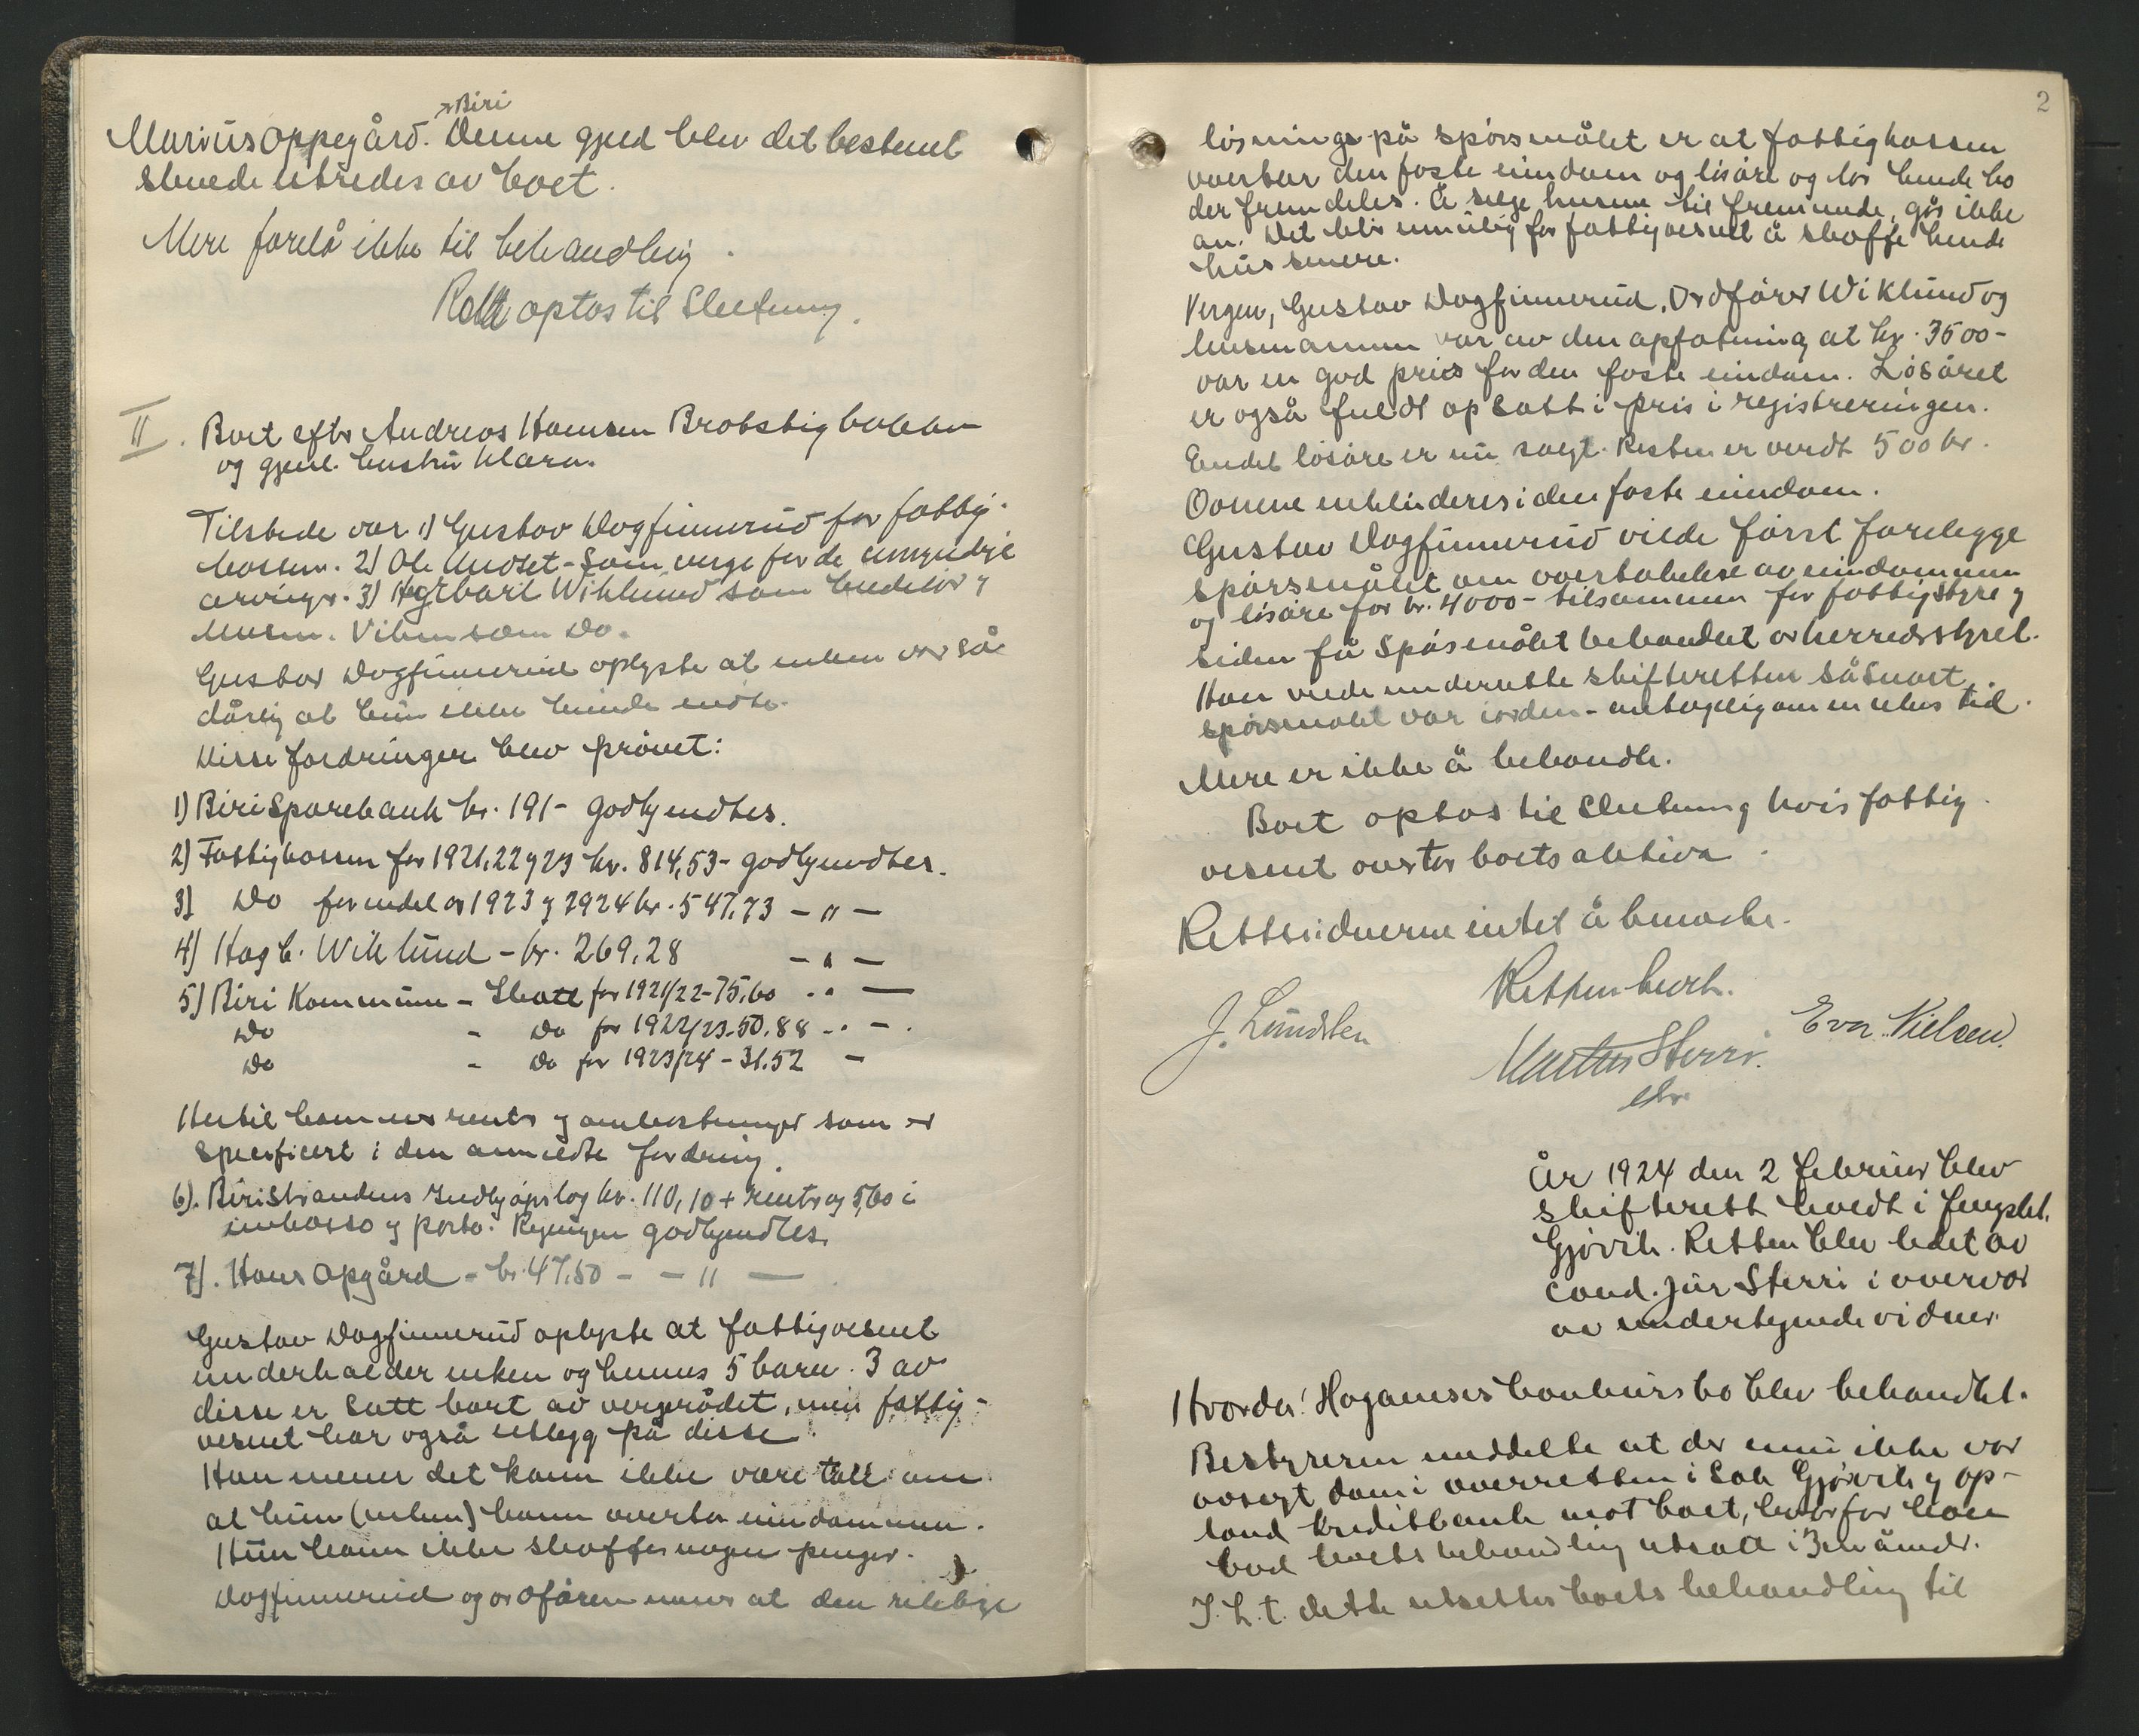 Biri
Marius Oppegård. Denne gjeld blev det bestemt
skuede utredes av boet.
Mere forelå ikke til behandling.
Rett optas til Slutning.
II. Boet efter Andreas Hansen Brotstigbakken
og gjenl. hustru Klara.
Tilstede var 1) Gustav Dagfinnerud for fattig-
kassen. 2) Ole Undset - Som verge for de umyndige
arvinger. 3) Hagbart Wiklund som kreditor og
Enken som Do.
Gustav Dagfinnerud oplyste at enken var så
dårlig at hun ikke kunde møte.
Disse fordringer blev prøvet:
1) Biri Sparebank kr. 191 - godkjendtes.
2) Fattigkassen for 1921, 22 og 23 kr. 814,53 - godkjendtes.
3) Do for endel av 1923 og 1924 kr. 547,73 - " -
4) Hagb. Wiklund - kr. 269,28 - " -
5) Biri Kommune - Skatt for 1921/22 - 75,60 - " -
Do - Do for 1922/23 - 50,88 - " -
Do - Do for 1923/24 - 31.52 -
Hertil kommer renter og omkostninger som er
specificert i den anmeldte fordring.
6). Biristrandens Indkjøpslag kr. 110,10 + renter og 5,60 i
inkasso og porto. Regningen godkjendtes.
7). Hans Opgård - kr. 47,50 - - " -
Gustav Dagfinnerud oplyste at fattigvesnet
underholder enken og hennes 5 barn. 3 av
disse er satt bort av vergerådet, men fattig-
vesnet har også utlegg på disse.
Han mener det kann ikke være tale om
at hun (enken) kann overta eiendommen.
Hun kann ikke skaffe nogen penger.
Dagfinnerud og ordføren mener at den riktige
2
løsninge på spørsmålet er at fattigkassen
overtar den faste eiendom og løsøre og lar hende bo
der fremdeles. Å selge husene til fremmede, går ikke
an. Det blir umulig for fattigvesnet å skaffe hende
hus senere.
Vergen, Gustav Dagfinnerud, Ordfører Wiklund og
lensmannen var av den opfatning at kr. 3500 -
var en god pris for den faste eiendom. Løsøret
er også fuldt opsatt i pris i registreringen.
Endel løsøre er nu solgt. Resten er verdt 500 kr.
Ovnene inkluderes i den faste eiendom.
Gustav Dagfinnerud vilde først forelegge
spørsmålet om overtakelse av eiendommen
og løsøre for kr. 4000 - tilsammen for fattigstyre og
siden få spørsmålet behandlet av herredsstyret.
Han vilde underrette skifteretten såsnart
spørsmålet var iorden - antagelig om en ukes tid.
Mere er ikke å behandle.
Boet optas til slutning hvis fattig-
vesnet overtar boets aktiva.
Rettsvidnerne intet å bemerke.
Retten hevet.
J. Lundsten
Martin Sterri.
Eva Nielsen.
År 1924 den 2 februar blev
skifterett holdt i fengslet,
Gjøvik. Retten blev ledet av
cand. jur Sterri i overvær
av undertegnede vidner.
Hvorda! Hagamoens konkursbo blev behandlet.
Bestyreren meddelte at der ennu ikke var
avsagt dom i overretten i sak Gjøvik og Op-
land Kreditbank mot boet, hvorfor han
bad boets behandling utsatt i 3 måneder.
I. h. t. dette utsettes boets behandling til